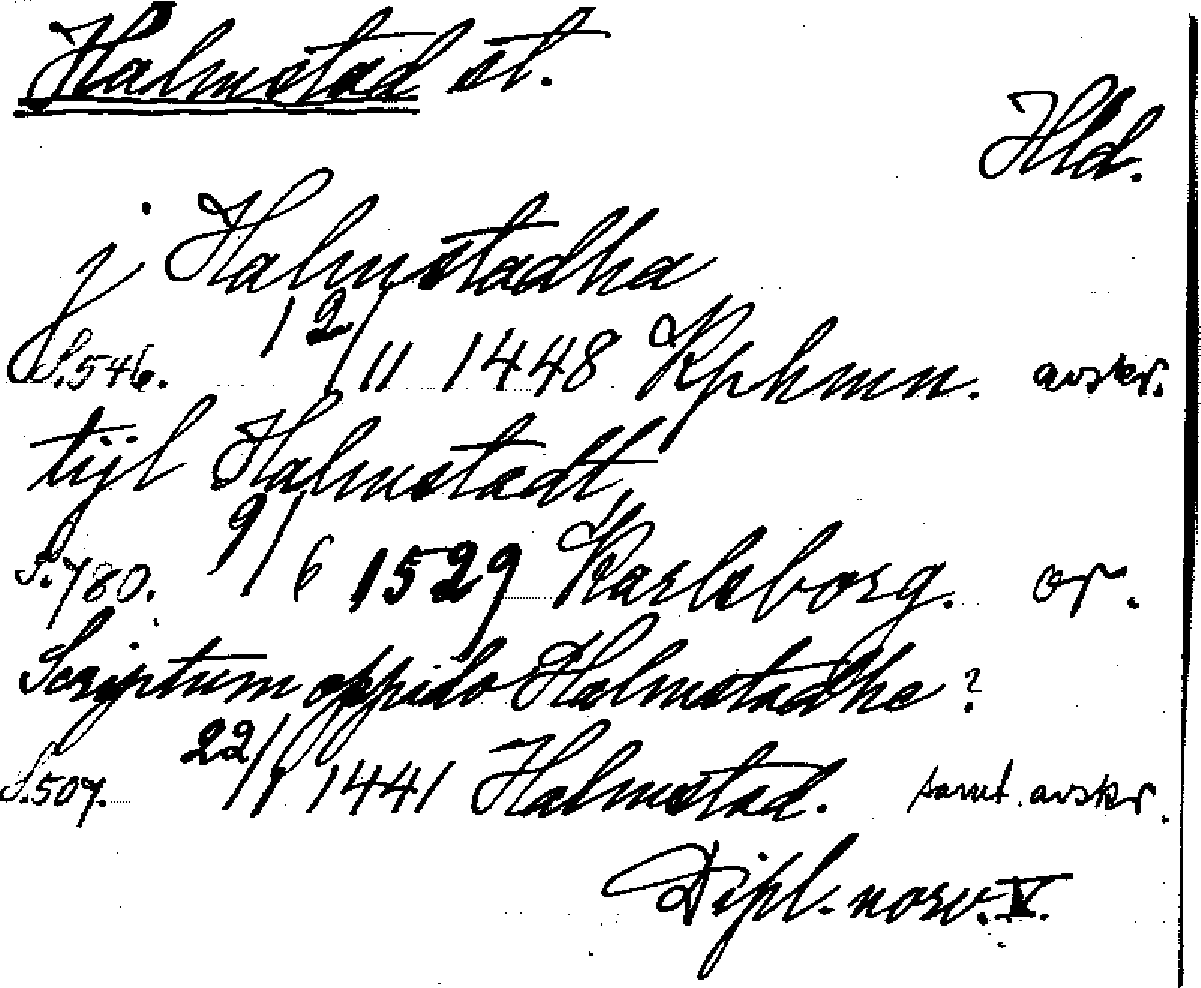 Halmstad st.
Hld.
j Halmstadha
S. 546. 12/11 1448 Kphmn. avskr.
tijl Halmstadt,
S. 780. 9/6 1529 Karlsborg. or.
Scriptum oppido Halmstadhe?
S. 507. 22/1 1441 Halmstad. samt. avskr.
Dipl. norv. V.